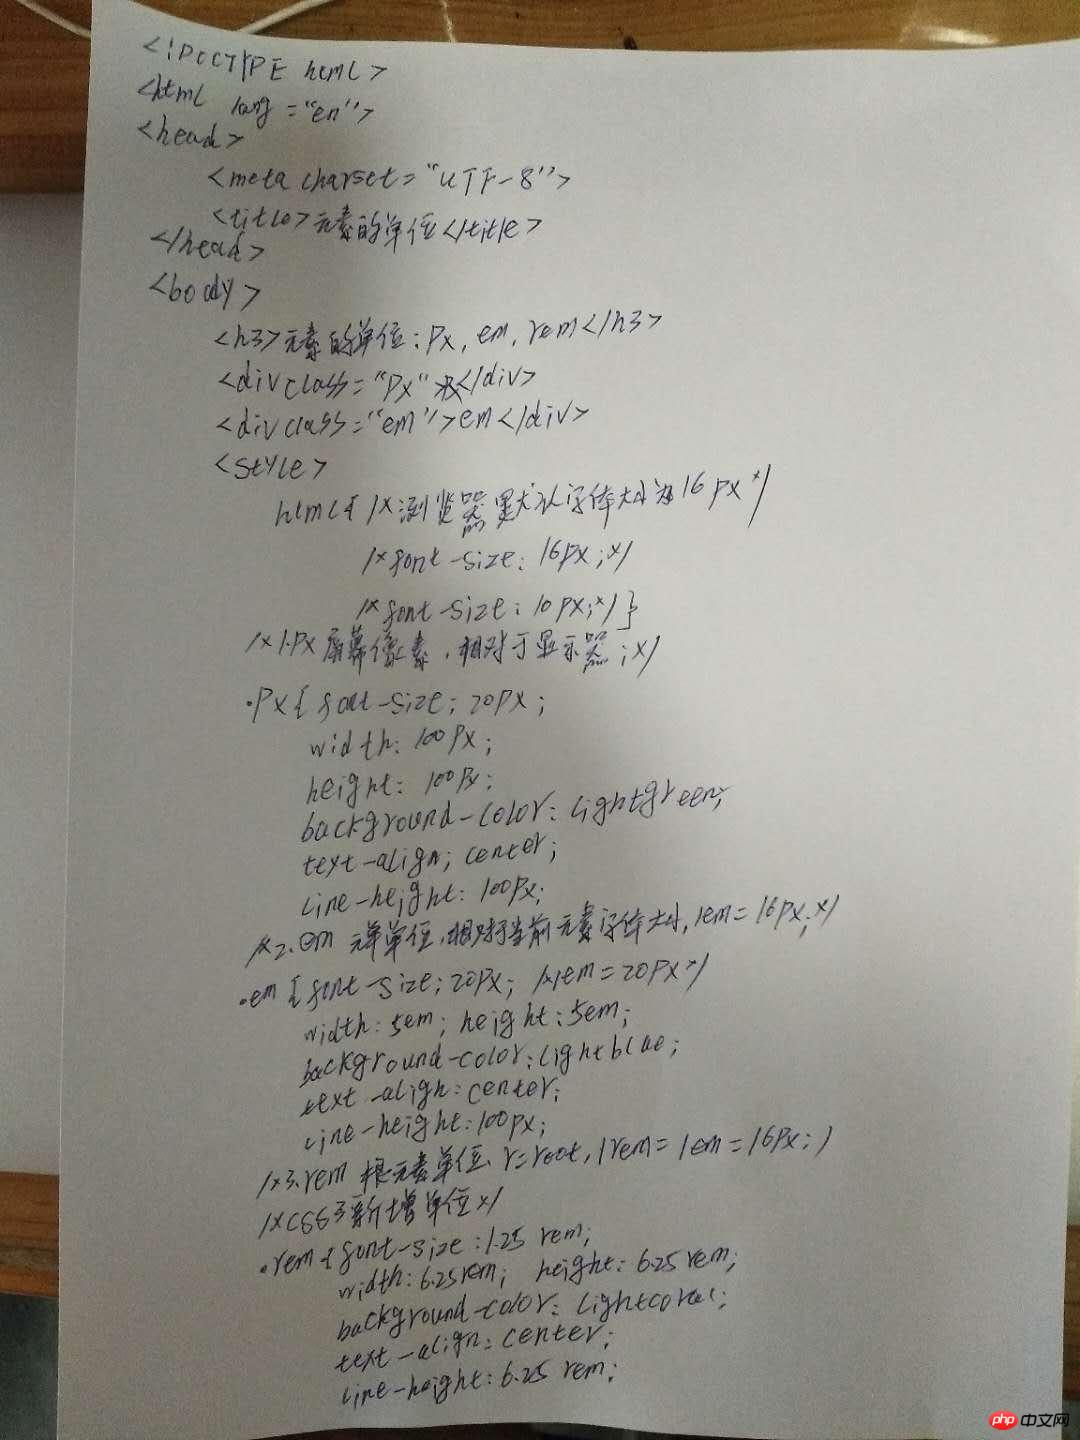 <!DOCTYPE html>
<html lang="en">
<head>
<meta charset="UTF-8">
<title>元素的单位</title>
</head>
<body>
<h3>元素的单位:px,em,rem</h3>
<div class="px"></div>
<div class="em">em</div>
<style>
html{ /*浏览器默认字体大小为16px*/
/*font-size:16px;*/
/*font-size:10px;*/}
/*1.px屏幕像素,相对于显示器;*/
.px{font-size:20px;
width:100px;
height:100px;
background-color:lightgreen;
text-align;center;
line-height:100px;
/*2.em 元单单位,相对于当前元素字体大小,1em=16px;*/
.em{font-size;20px; /*1em=20px*/
width:5em; height:5em;
background-color:lightblue;
text-align:center;
line-height:100px;
/*3.rem 根元素单位、r=root,1rem=1em=16px;)
/*CSS3新增单位*/
.rem{font-size:1.25rem;
width:6.25rem; height:6.25rem;
background-color:lightcoral;
text-align:center;
line-height:6.25rem;
php中文网